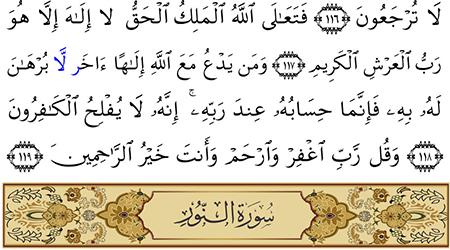 لَا تُرْجَعُونَ ﴿١١٦﴾ فَتَعَـٰلَى ٱللَّهُ ٱلْمَلِكُ ٱلْحَقُّ لَا إِلَـٰهَ إِلَّا هُوَ
رَبُّ ٱلْعَرْشِ ٱلْكَرِيمِ ﴿١١٧﴾ وَمَن يَدْعُ مَعَ ٱللَّهِ إِلَـٰهًا ءَاخَر لَّا بُرْهَـٰنَ
لَهُۥ بِهِۦ فَإِنَّمَا حِسَابُهُۥ عِندَ رَبِّهِۦٓ ۚ إِنَّهُۥ لَا يُفْلِحُ ٱلْكَـٰفِرُونَ
﴿١١٨﴾ وَقُل رَّبِّ ٱغْفِرْ وَٱرْحَمْ وَأَنتَ خَيْرُ ٱلرَّٰحِمِينَ ﴿١١٩﴾
سُورَةُ النُّورِ